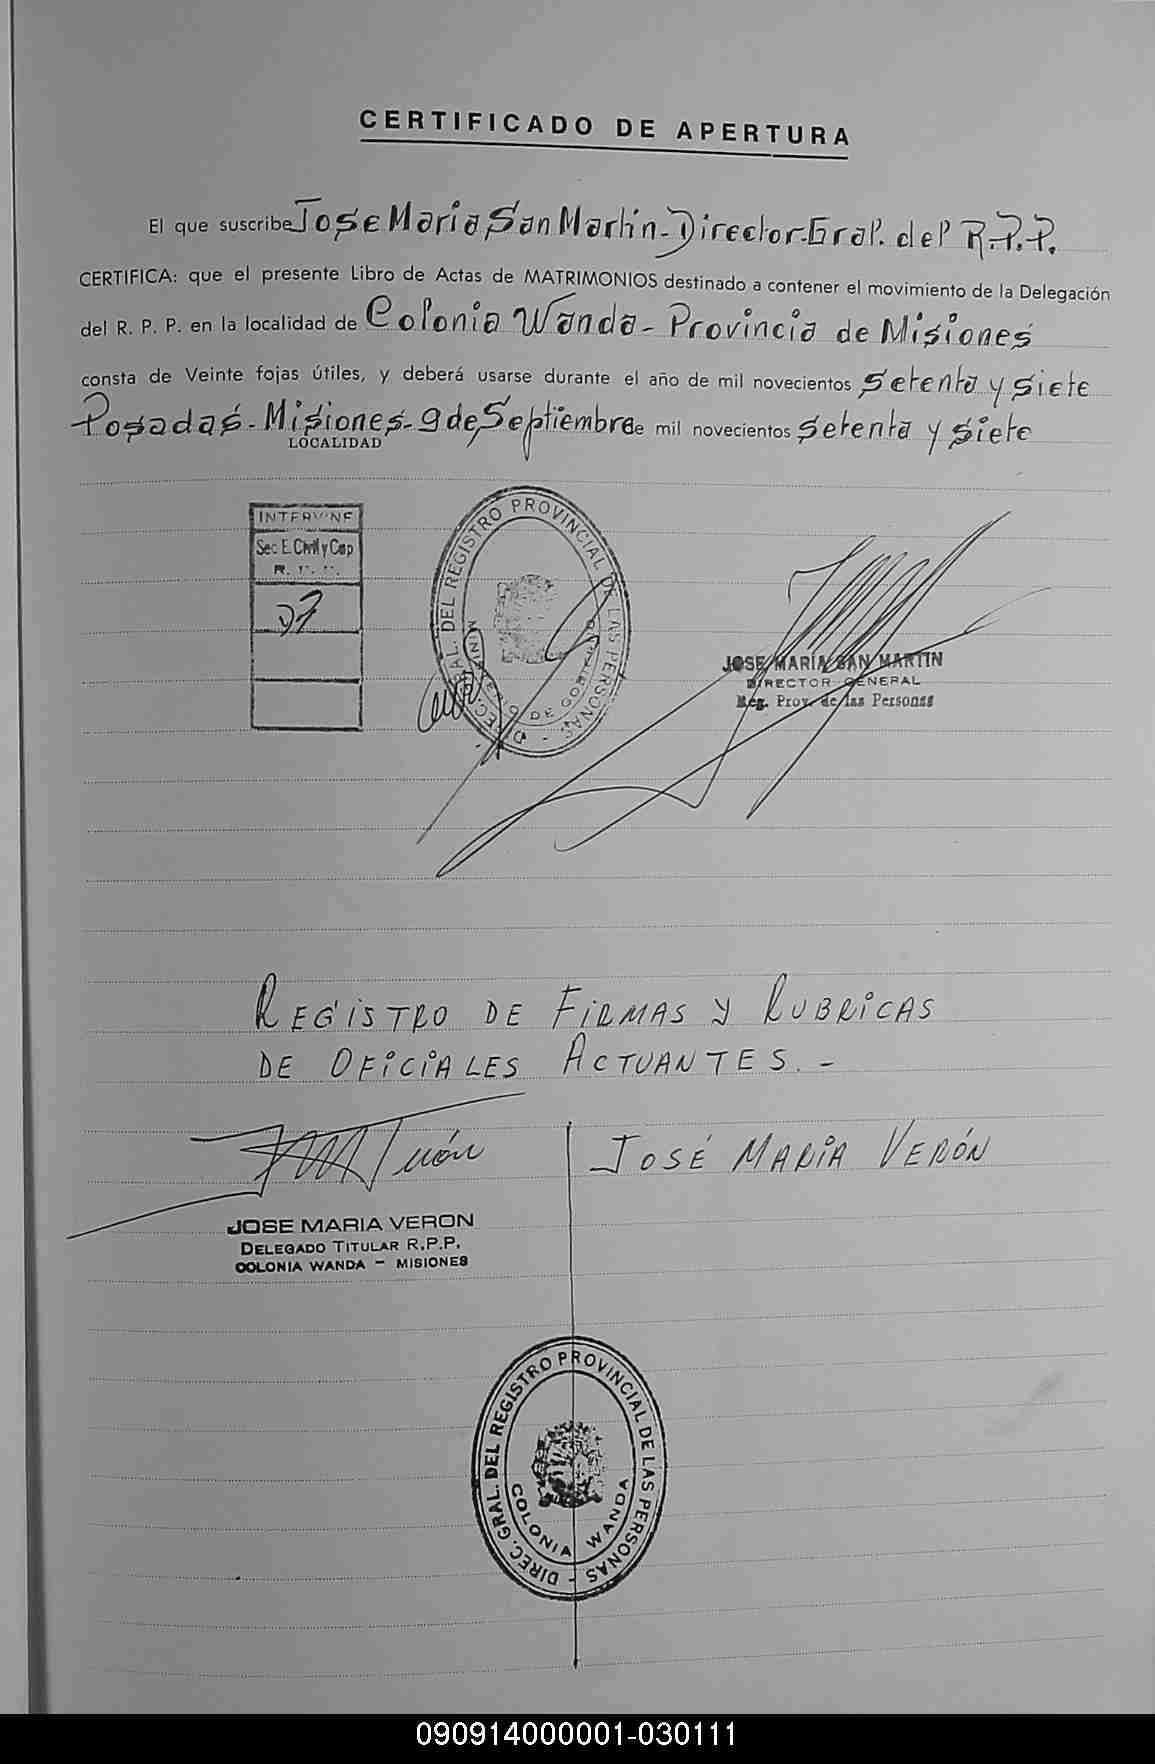 CERTIFICADO DE APERTURA
El que suscribe Jose Maria San Martin - Director - Gral. del R.P.P.
CERTIFICA: que el presente Libro de Actas de MATRIMONIOS destinado a contener el movimiento de la Delegación
del R. P. P. en la localidad de Colonia Wanda - Provincia de Misiones
consta de Veinte fojas útiles, y deberá usarse durante el año de mil novecientos Setenta y Siete
Posadas - Misiones - 9 de Septiembre de mil novecientos Setenta y Siete
LOCALIDAD
INTERVINE
Sec E. Civil y Cap
DIREC. GRAL. DEL REGISTRO PROVINCIAL DE LAS PERSONAS -
MINISTERIO DE GOBIERNO
JOSE MARIA SAN MARTIN
DIRECTOR GENERAL
Reg. Prov. de las Personas
REGISTRO DE FIRMAS Y RUBRICAS
DE OFICIALES ACTUANTES. -
JOSÉ MARIA VERÓN
JOSE MARIA VERON
DELEGADO TITULAR R.P.P.
COLONIA WANDA - MISIONES
DIREC. GRAL. DEL REGISTRO PROVINCIAL DE LAS PERSONAS -
COLONIA WANDA
090914000001-030111